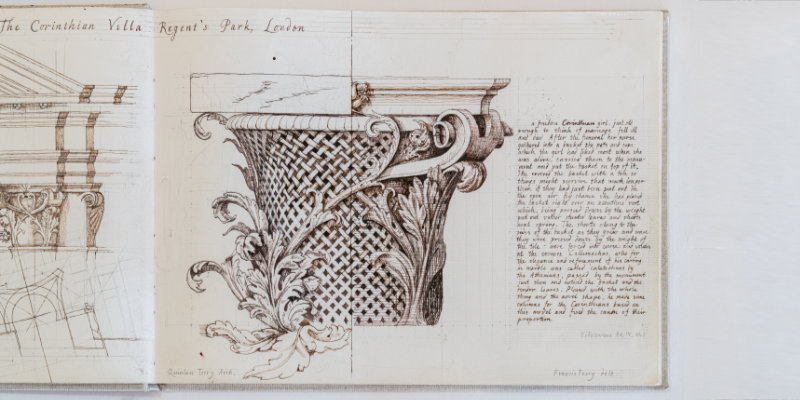 The Corinthian Villa Regent's Park, London
a freeborn Corinthian girl, just old
enough to think of marriage, fell ill
and died. After the funeral her nurse
gathered into a basket the pots and cups
which the girl had liked most when she
was alive, carried them to the monu-
ment and put the basket on top of it.
She covered the basket with a tile so
things might survive that much longer
than if they had just been put out in
the open air. By chance she had placed
the basket right over an acanthus root
which, being pressed down by the weight
put out rather stunted leaves and shoots
next spring. The shoots clung to the
sides of the basket as they grew and since
they were pressed down by the weight of
the tile were forced into curves and volutes
at the corners. Callimachus, who for
the elegance and refinement of his carving
in marble was called catatechnos by
the Athenians, passed by the monument
just then and noticed the basket and the
tender leaves. Pleased with the whole
thing and the novel shape, he made some
columns for the Corinthians based on
this model and fixed the canon of their
proportion.
Vitruvius Bk IV, ch 1
Quinlan Terry Arch.
Francis Terry delt